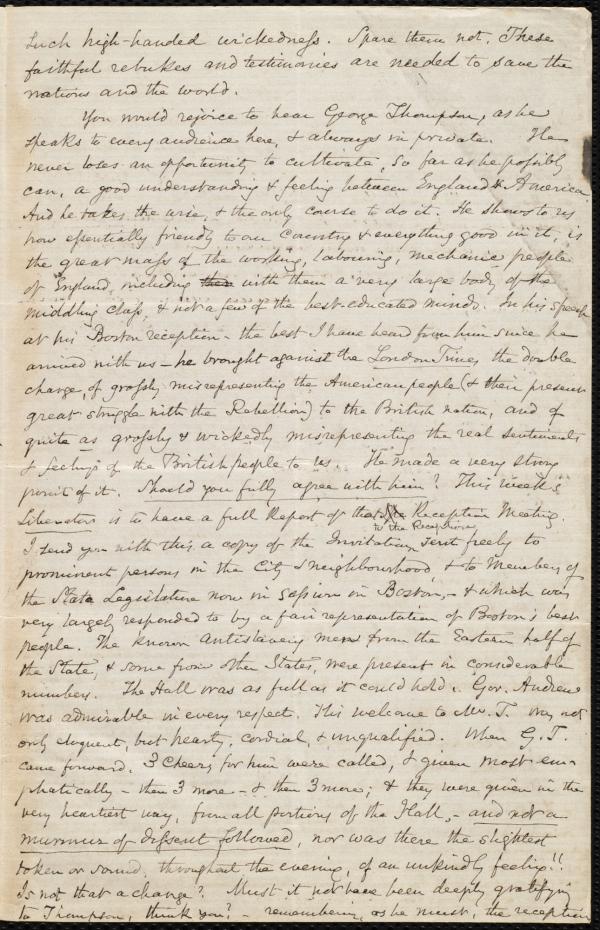 such high-handed wickedness. Spare them not. These
faithful rebukes and testimonies are needed to save the
nations and the world.
You would rejoice to hear George Thompson, as he
speaks to every audience here, & always in private. He
never loses an opportunity to cultivate, so far as he possibly
can, a good understanding & feeling between England & America.
And he takes the wise, & the only course to do it. He shows to us
how essentially friendly to our Country & everything good in it, is
the great mass of the working, labouring, mechanic people
of England, including with them a very large body of the
middling class, & not a few of the best-educated minds. In his speech
at his Boston reception - the best I have heard from him since he
arrived with us - he brought against the London Times the double
charge, of grossly misrepresenting the American people (& their present
great struggle with the Rebellion) to the British nation, and of
quite as grossly & wickedly misrepresenting the real sentiments
& feelings of the British people to us. He made a very strong
point of it. Should you fully agree with him? This week's
Liberator is to have a full Report of that Reception Meeting.
to the Reception
I send you with this a copy of the Invitation, sent freely to
prominent persons in the City & neighbourhood & to Members of
the State Legislature now in session in Boston, - & which was
very largely responded to by a fair representation of Boston's best
people. The known Antislavery men from the Eastern half of
the State, & some from other States, were present in considerable
numbers. The Hall was as full as it could hold. Gov. Andrew
was admirable in every respect. His welcome to Mr. T. was not
only eloquent, but hearty, cordial, & unqualified. When G. T.
came forward, 3 Cheers for him were called, & given most em-
phatically - then 3 more - & then 3 more; & they were given in the
very heartiest way, from all portions of the Hall, - and not a
murmur of dissent followed, nor was there the slightest
token or sound, throughout the evening, of an unkindly feeling!!
Is not that a change? Must it not have been deeply gratifying
to Thompson, think you? - remembering, as he must, the reception